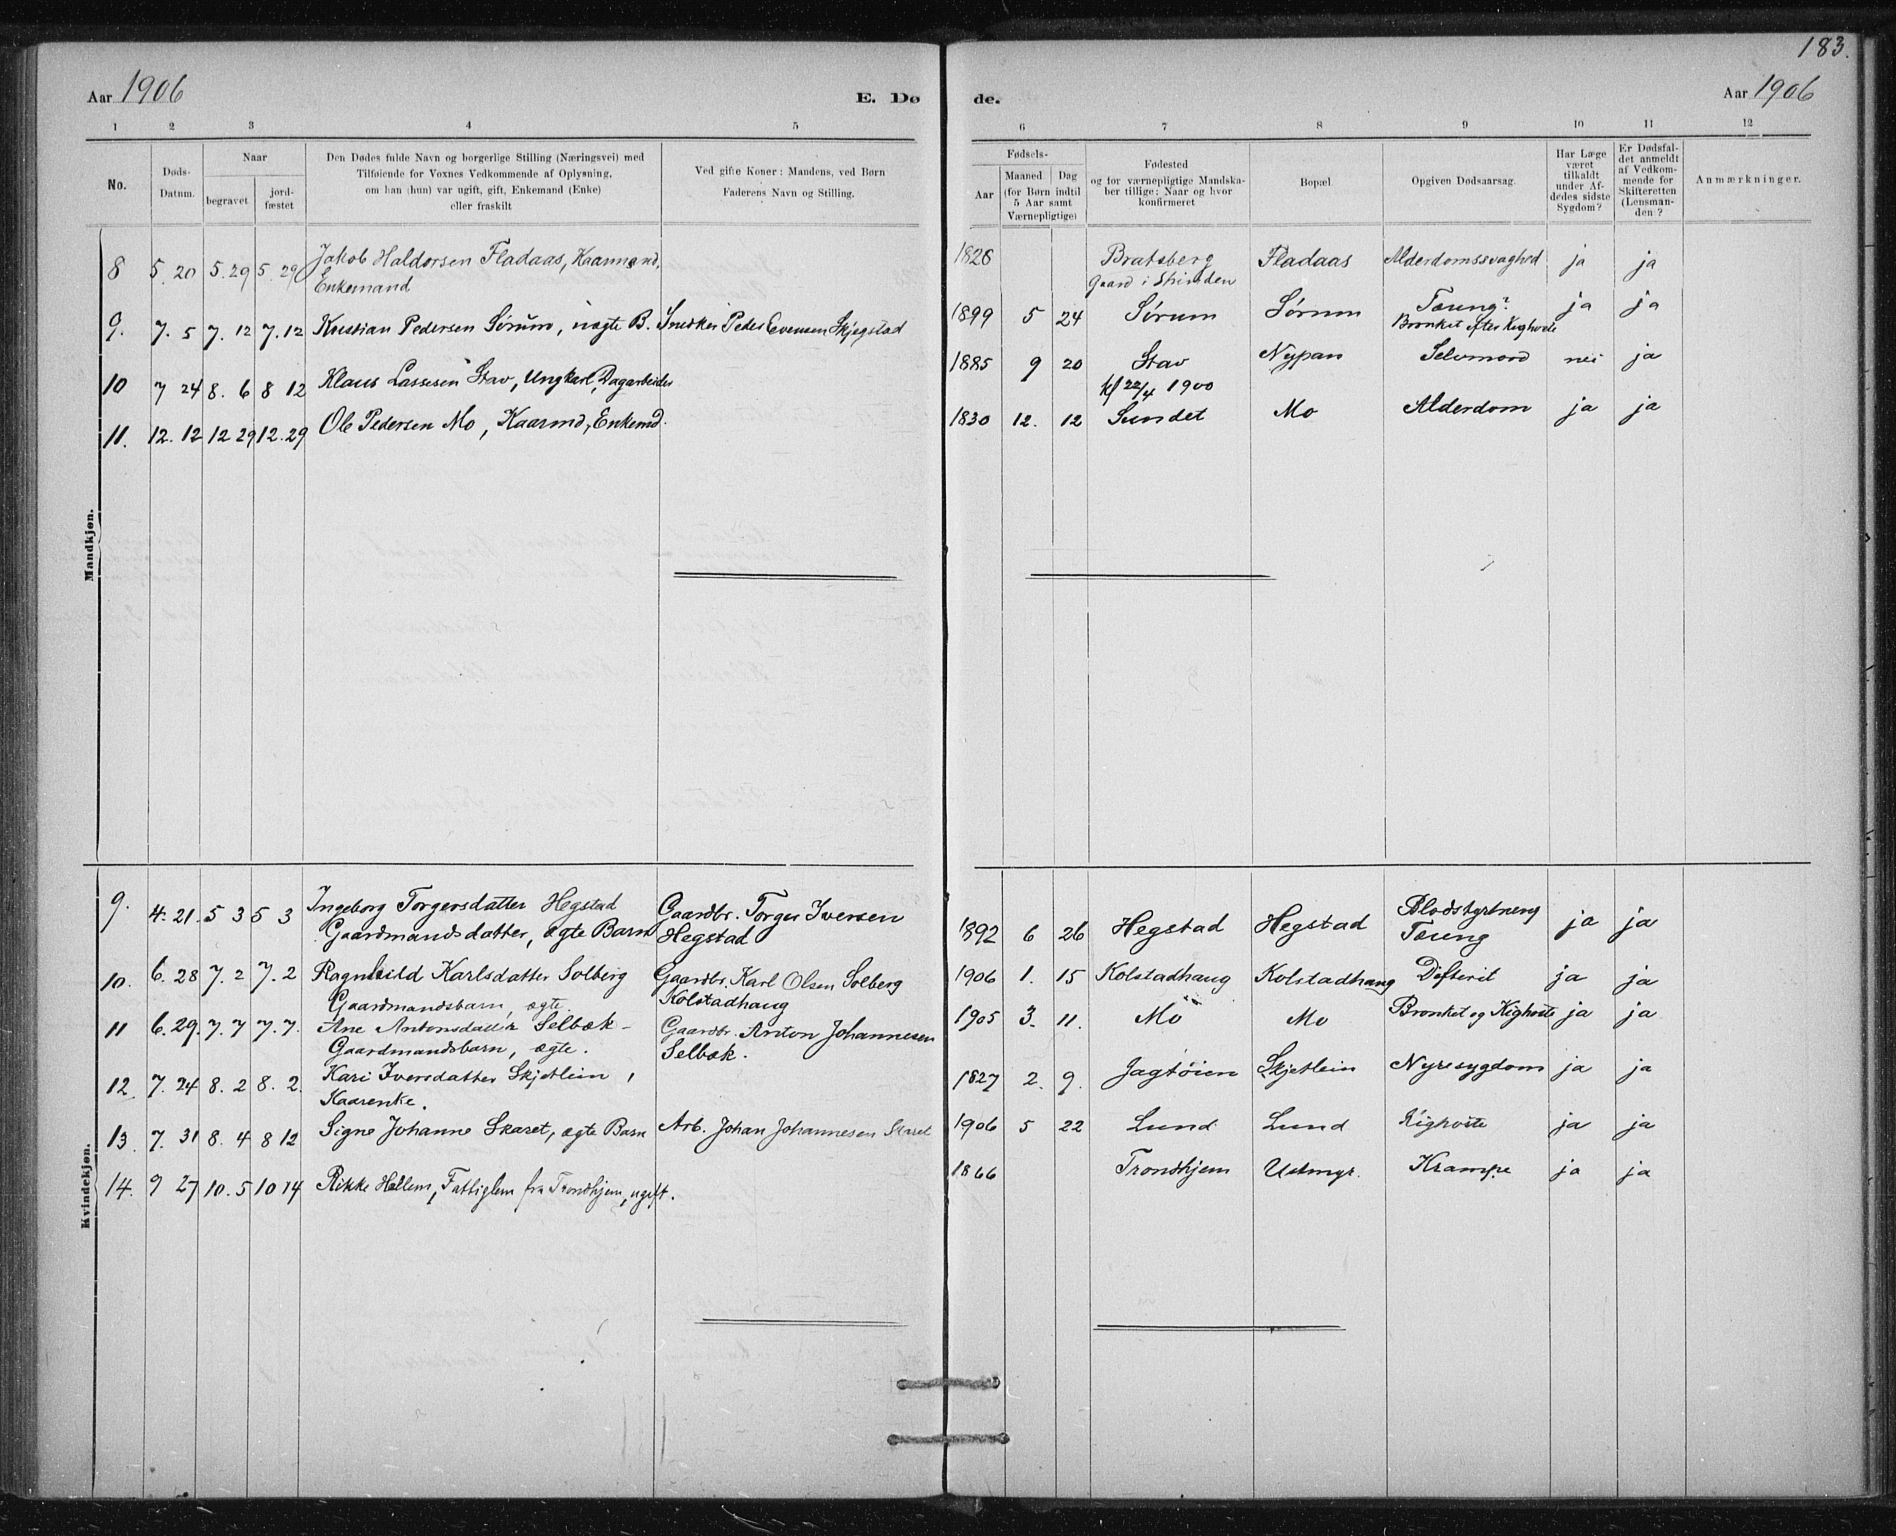 183.
Aar 1906
E. Dø
de.
Aar 1906
1 2 3 4 5 6 7 8 9 10 11 12
No.
Døds-
Datum.
Naar
begravet
jord-
fæstet
Den Dødes fulde Navn og borgerlige Stilling (Næringsvei) med
Tilføiende for Voxnes Vedkommende af Oplysning,
om han (hun) var ugift, gift, Enkemand (Enke)
eller fraskilt
Ved gifte Koner: Mandens, ved Børn
Faderens Navn og Stilling.
Fødsels-
Aar
Maaned Dag
(for Børn indtil
5 Aar samt
Værnepligtige)
Fødested
og for værnepligtige Mandska-
ber tillige: Naar og hvor
konfirmeret
Bopæl.
Opgiven Dødsaarsag.
Har Læge
været
tilkaldt
under Af-
dødes sidste
Sygdom?
Er Dødsfal-
det anmeldt
af Vedkom-
mende for
Skifteretten
(Lensman-
den?
Anmærkninger.
Mandkjøn.
8 5. 20 5. 29 5. 29 Jakob Haldorsen Fladaas, Kaarmand, 1826 Bratsberg Fladaas Alderdomssvaghed ja ja
Enkemand Gaard i Strinden
9. 7. 5 7. 12 7. 12 Kristian Pedersen Sørum, uægte B. Snedker Peder Evensen Skjegstad 1899 5 24 Sørum Sørum Tæring? ja ja
Bronkit efter Kighoste
10 7 24 8. 6 8 12 Klaus Lassesen Stav, Ungkarl, Dagarbeider 1885 9 20 Stav Nypan Selvmord nei ja
kf 22/4 1900
11. 12. 12 12 29 12. 29 Ole Pedersen Mo, Kaarmd, Enkemd. 1830 12. 12 Sundet Mo Alderdom ja ja
Kvindekjøn.
9. 4. 21. 5 3 5 3 Ingeborg Torgersdatter Hegstad Gaardbr. Torger Iversen 1892 6 26 Hegstad Hegstad Blodstyrtning ja ja
Gaardmandsdatter, ægte Barn Hegstad Tæring
10. 6. 28 7. 2 7. 2 Ragnhild Karlsdatter Solberg Gaardbr. Karl Olsen Solberg 1906 1. 15 Kolstadhaug Kolstadhaug Difterit ja ja
Gaardmandsbarn, ægte Kolstadhaug
11 6. 29. 7. 7 7. 7. Ane Antonsdatter Selbæk - Gaardbr. Anton Johannesen 1905 3. 11. Mo Mo Bronket og Kighoste ja ja
Gaardmandsbarn, ægte. Selbæk.
12 7. 24 8. 2 8. 2. Kari Iversdatter Skjetlein, 1827 2. 9. Jagtøien Skjetlein Nyresygdom ja ja
Kaarenke.
13 7. 31 8. 4 8 12 Signe Johanne Skaret, ægte Barn Arb. Johan Johannesen Skaret 1906 5 22 Lund Lund Kighoste ja ja
14. 9 27 10. 5 10 14 Rikke Hallem, Fattiglem fra Trondhjem, ugift. 1866 Trondhjem Ustmyr. Krampe ja ja